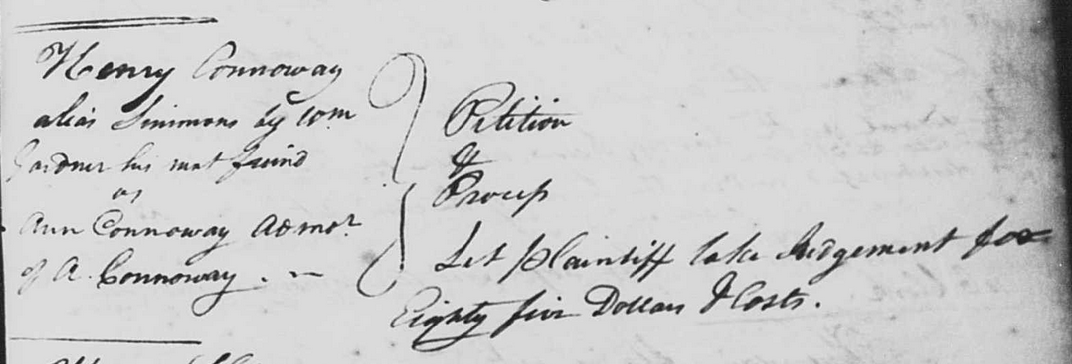 Henry Connoway
alias Simmons by Wm
Gardner his next friend
vs
Ann Connoway Admor.
of A. Connoway.
Petition
&
Process
Let Plaintiff take Judgement for
Eighty five Dollars & Costs.